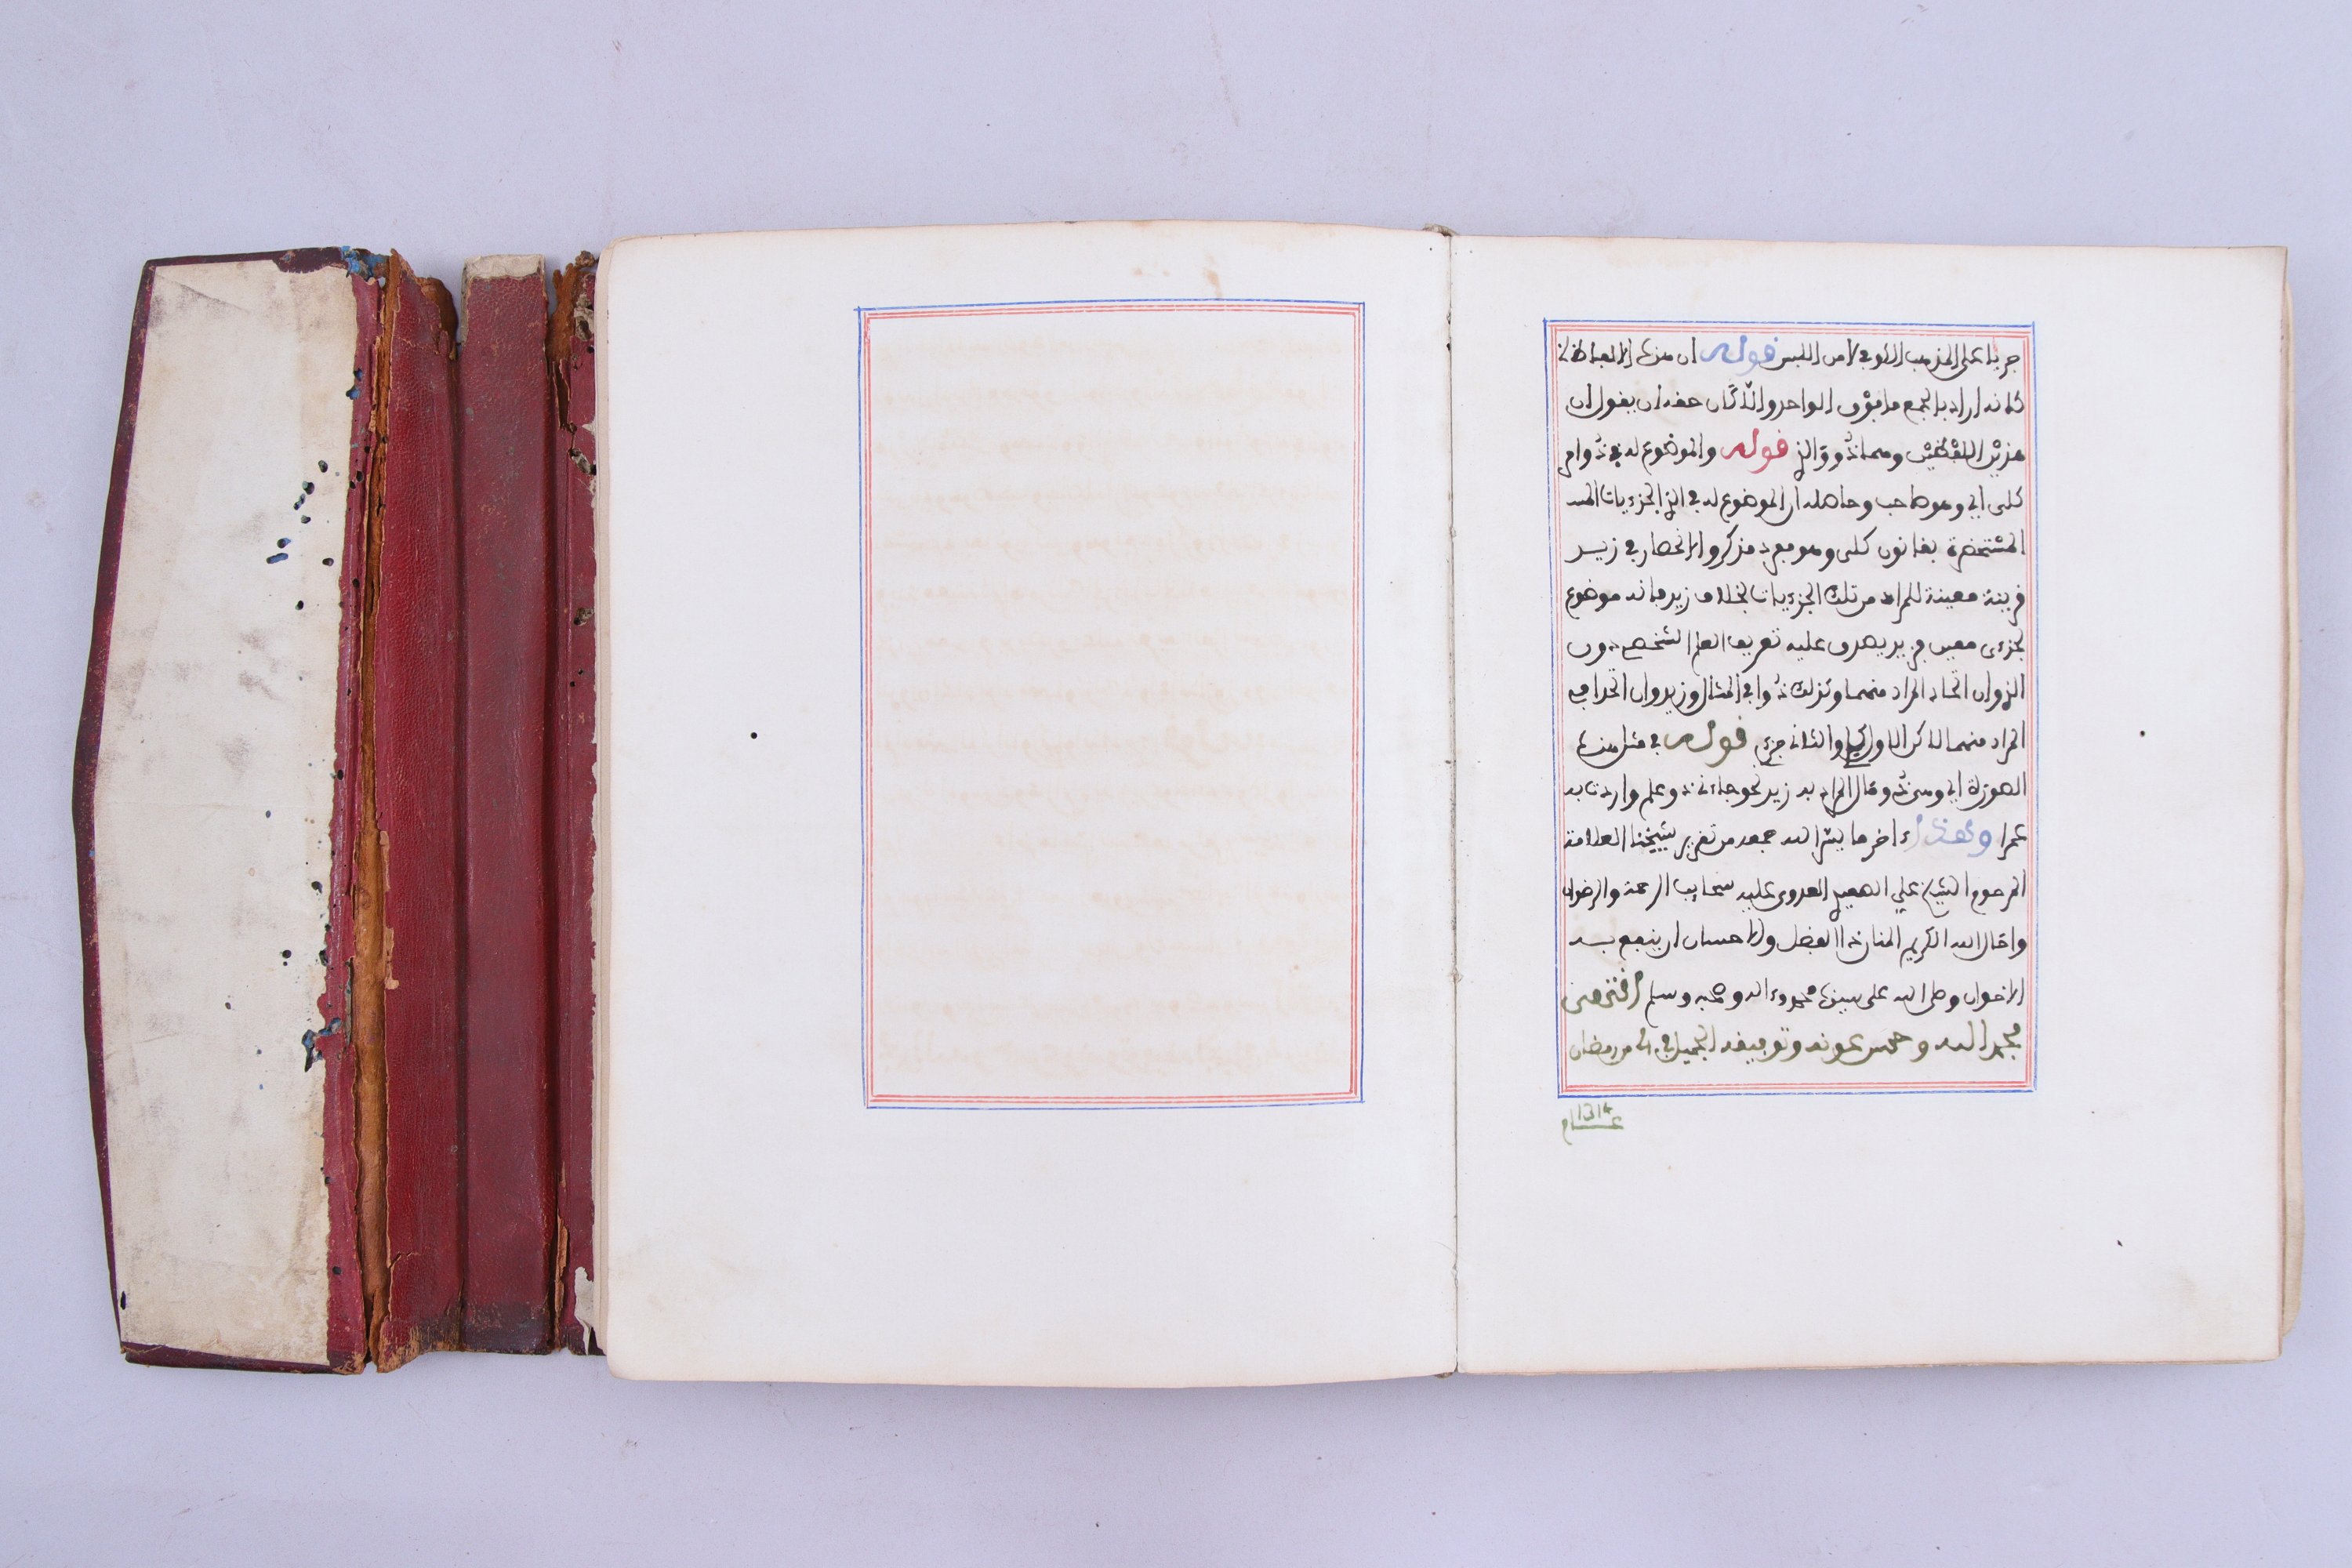 جريا على المذهب الكوفي لامن اللبس قوله ان هذه الالفاظ
كانه اراد بالجمع ما فوق الواحد والا كان حقه ان يقول ان
هذين اللفظين وهما ذو والذ قوله والموضوع له في ذو امر
كلى اي وهو صاحب وحاصله ان الموضوع له في الذ الجزءيات
المستحضرة بقانون كلى وهو
قرينة معينة للمراد من تلك الجزءيات بخلاف زيد فانه موضوع
لجزءى معين فزيد يصدق عليه تعريف العلم الشخصي دون
الذوان اتحاد المراد منهما وكذلك ذو في المثال وزيد وان اتحد
المراد منهما لاكن الاول كلي والثاني جزءي قوله في مثل هذه
الصورة اي ومن ذو قال المراد به زيد نحو جاءني ذو علم واردت به
عمرا وهذا ءاخر ما يسر الله جمعه من تقرير شيخنا العلامة
المرحوم الشيخ علي الصعيدي العدوى عليه سحايب الرحمة والرضوان
واسال الله الكريم المنان ذا الفضل والاحسان ان ينفع به
الاخوان وصلى الله على سيدنا محمد وءاله وصحبه وسلم
بحمد الله وحسن عونه وتوفيقه الجميل في من رمضان
عام 1314